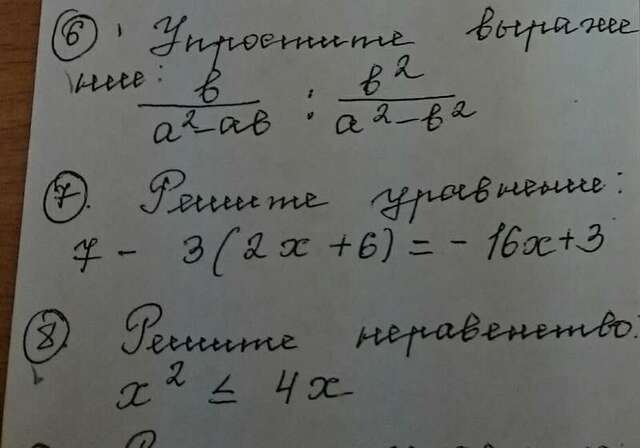 6. Упростите выраже
ние:
b/(a²-ab) : b²/(a²-b²)
7. Решите уравнение:
7 - 3(2x+6) = -16x+3
8 Решите неравенство:
x² ≤ 4x